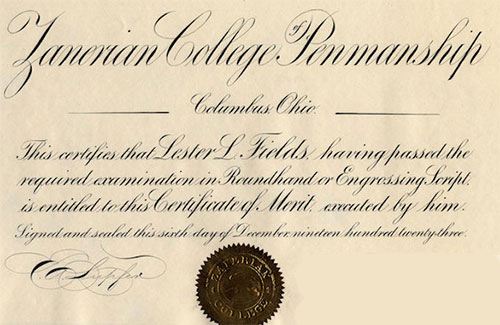 Zanerian College of Penmanship
Columbus, Ohio.
This certifies that Lester L. Fields, having passed the
required examination in Roundhand or Engrossing Script,
is entitled to this Certificate of Merit, executed by him.
Signed and sealed this sixth day of December, nineteen hundred twenty-three.
ZANERIAN
COLLEGE